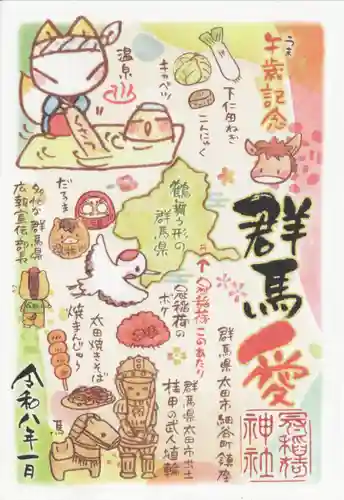 午歳記念
うま
群馬愛
冠稲荷神社
下仁田ねぎ
キャベツ
こんにゃく
温泉
くさつ
鶴舞う形の
群馬県
↑冠稲荷このあたり
群馬県太田市細谷町鎮座
だるま
冠稲荷の
ボケ
群馬県
広報宣伝部長
太田焼きそば
焼まんじゅう
群馬県太田市出土
挂甲の武人埴輪
馬
令和八年一月